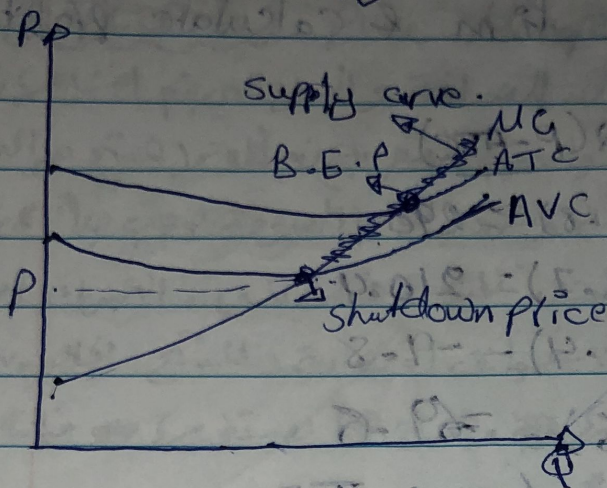 Pp
Supply curve.
MC
B.E.P
ATC
AVC
P.
shutdown price
Q